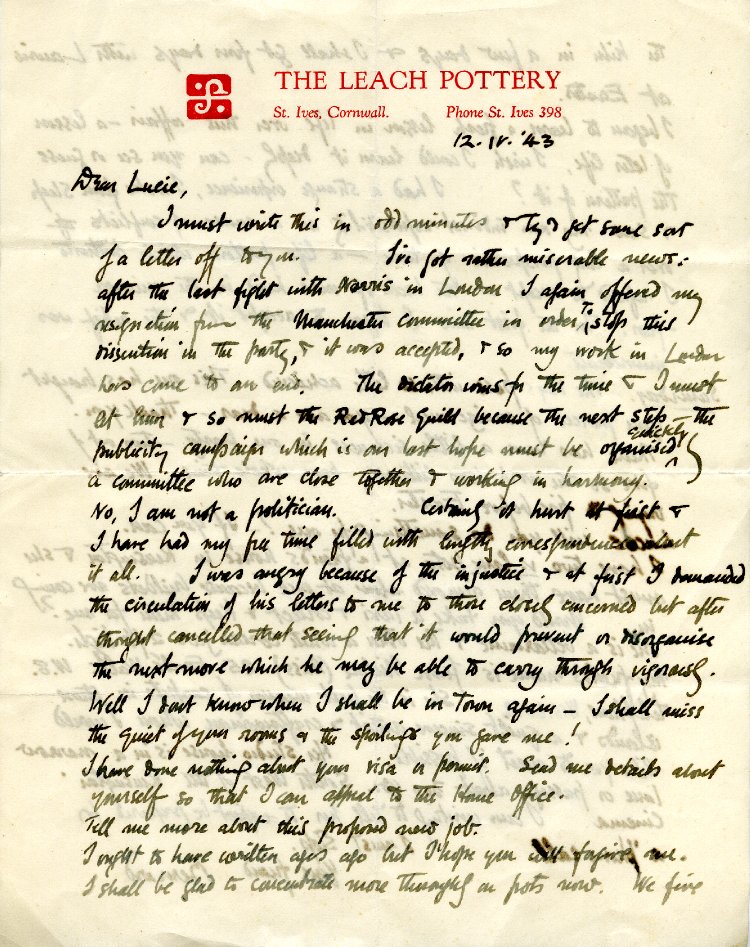 THE LEACH POTTERY
St. Ives, Cornwall. Phone St. Ives 398
12. IV. '43
Dear Lucie,
I must write this in odd minutes & try & get some sort
of a letter off to you. I've got rather miserable news:-
after the last fight with Norris in London I again offered my
resignation from the Manchester committee in order to stop this
dissention in the party, & it was accepted, & so my work in London
has come to an end. The dictator wins for the time & I must
let him & so must the Red Rose Guild because the next step – the
publicity campaign which is our last hope must be quickly organised
a committee who are close together & working in harmony.
No, I am not a politician. Certainly it hurt at first &
I have had my free time filled with lengthy correspondence about
it all. I was angry because of the injustice & at first I demanded
the circulation of his letters to me to those closely concerned but after
thought cancelled that seeing that it would prevent or disorganise
the next move which he may be able to carry through vigorously.
Well I dont know when I shall be in Town again – I shall miss
the quiet of your rooms & the spoilings you gave me!
I have done nothing about your visa or permit. Send me details about
yourself so that I can appeal to the Home Office.
Tell me more about this proposed new job.
I ought to have written ages ago but I hope you will forgive me.
I shall be glad to concentrate more throughly on pots now. We five